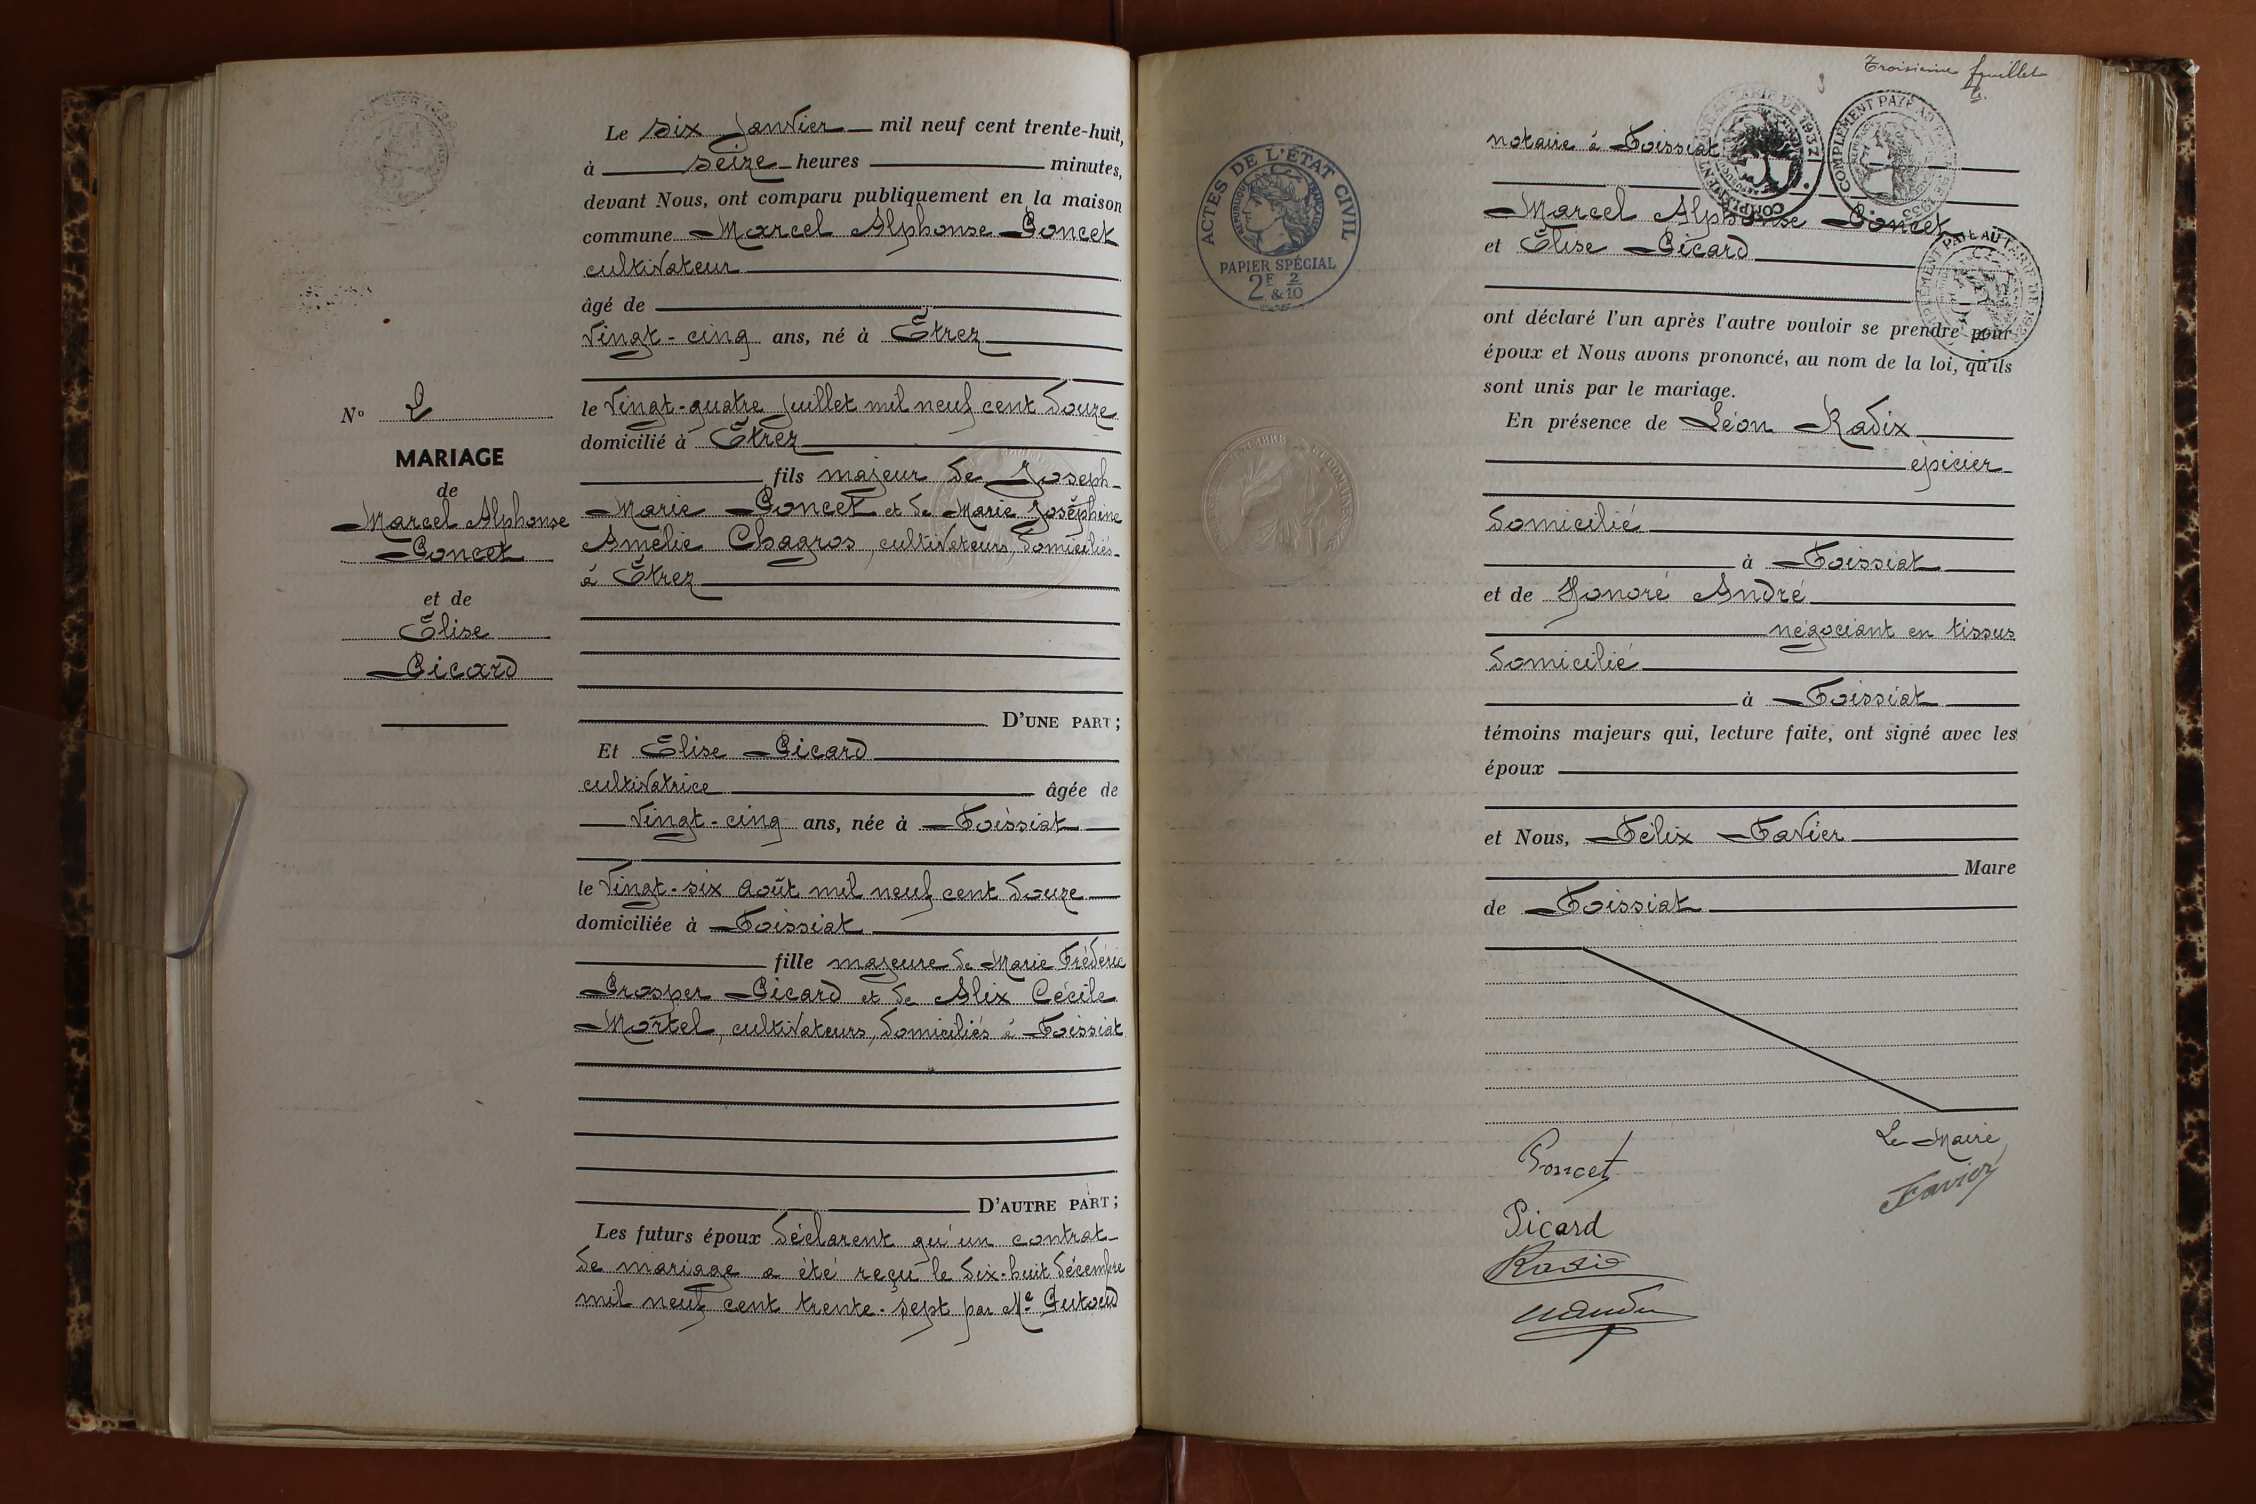 Le six Janvier mil neuf cent trente-huit,
à seize heures minutes,
devant Nous, ont comparu publiquement en la maison
commune Marcel Alphonse Poncet
cultivateur
âgé de
vingt-cinq ans, né à Étrez
le vingt-quatre juillet mil neuf cent douze
domicilié à Étrez
fils majeur de Joseph
Marie Poncet et de Marie Joséphine
Amélie Chagros, cultivateurs, domiciliés
à Étrez
D'UNE PART ;
Et Élise Picard
cultivatrice âgée de
vingt-cinq ans, née à Foissiat
le vingt-six août mil neuf cent douze
domiciliée à Foissiat
fille majeure de Marie Frédéric
Prosper Picard et de Alix Cécile
Mortel, cultivateurs, domiciliés à Foissiat
D'AUTRE PART ;
Les futurs époux déclarent qu'un contrat
de mariage a été reçu le dix-huit décembre
mil neuf cent trente-sept par Me
N° 2
MARIAGE
de
Marcel Alphonse
Poncet
et de
Élise
Picard
Troisième feuillet
notaire à Foissiat
Marcel Alphonse Poncet
et Élise Picard
ont déclaré l'un après l'autre vouloir se prendre pour
époux et Nous avons prononcé, au nom de la loi, qu'ils
sont unis par le mariage.
En présence de Léon Radix
épicier
domicilié
à Foissiat
et de Honoré André
négociant en tissus
domicilié
à Foissiat
témoins majeurs qui, lecture faite, ont signé avec les
époux
et Nous, Félix Favier
Maire
de Foissiat
Le Maire
Favier
Poncet
Picard
Radix
ACTES DE L'ÉTAT CIVIL
RÉPUBLIQUE FRANÇAISE
PAPIER SPÉCIAL
2F & 2/10
COMPLÉMENT PAYÉ AU TARIF DE 1937